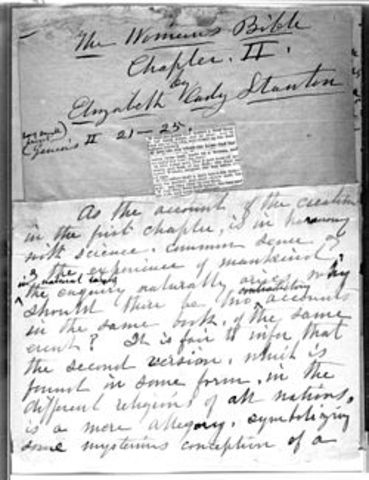 The Woman's Bible
Chapter. II.
by
Elizabeth Cady Stanton
(Genesis II 21—25.
As the account of the creation
in the first chapter, is in harmony
with science, common sense, &
the experience of mankind
in natural laws,
the enquiry naturally arises, why
should there be two contradictory accounts
in the same book, of the same
event? It is fair to infer that
the second version, which is
found in some form, in the
different religions of all nations,
is a mere allegory, symbolizing
some mysterious conception of a